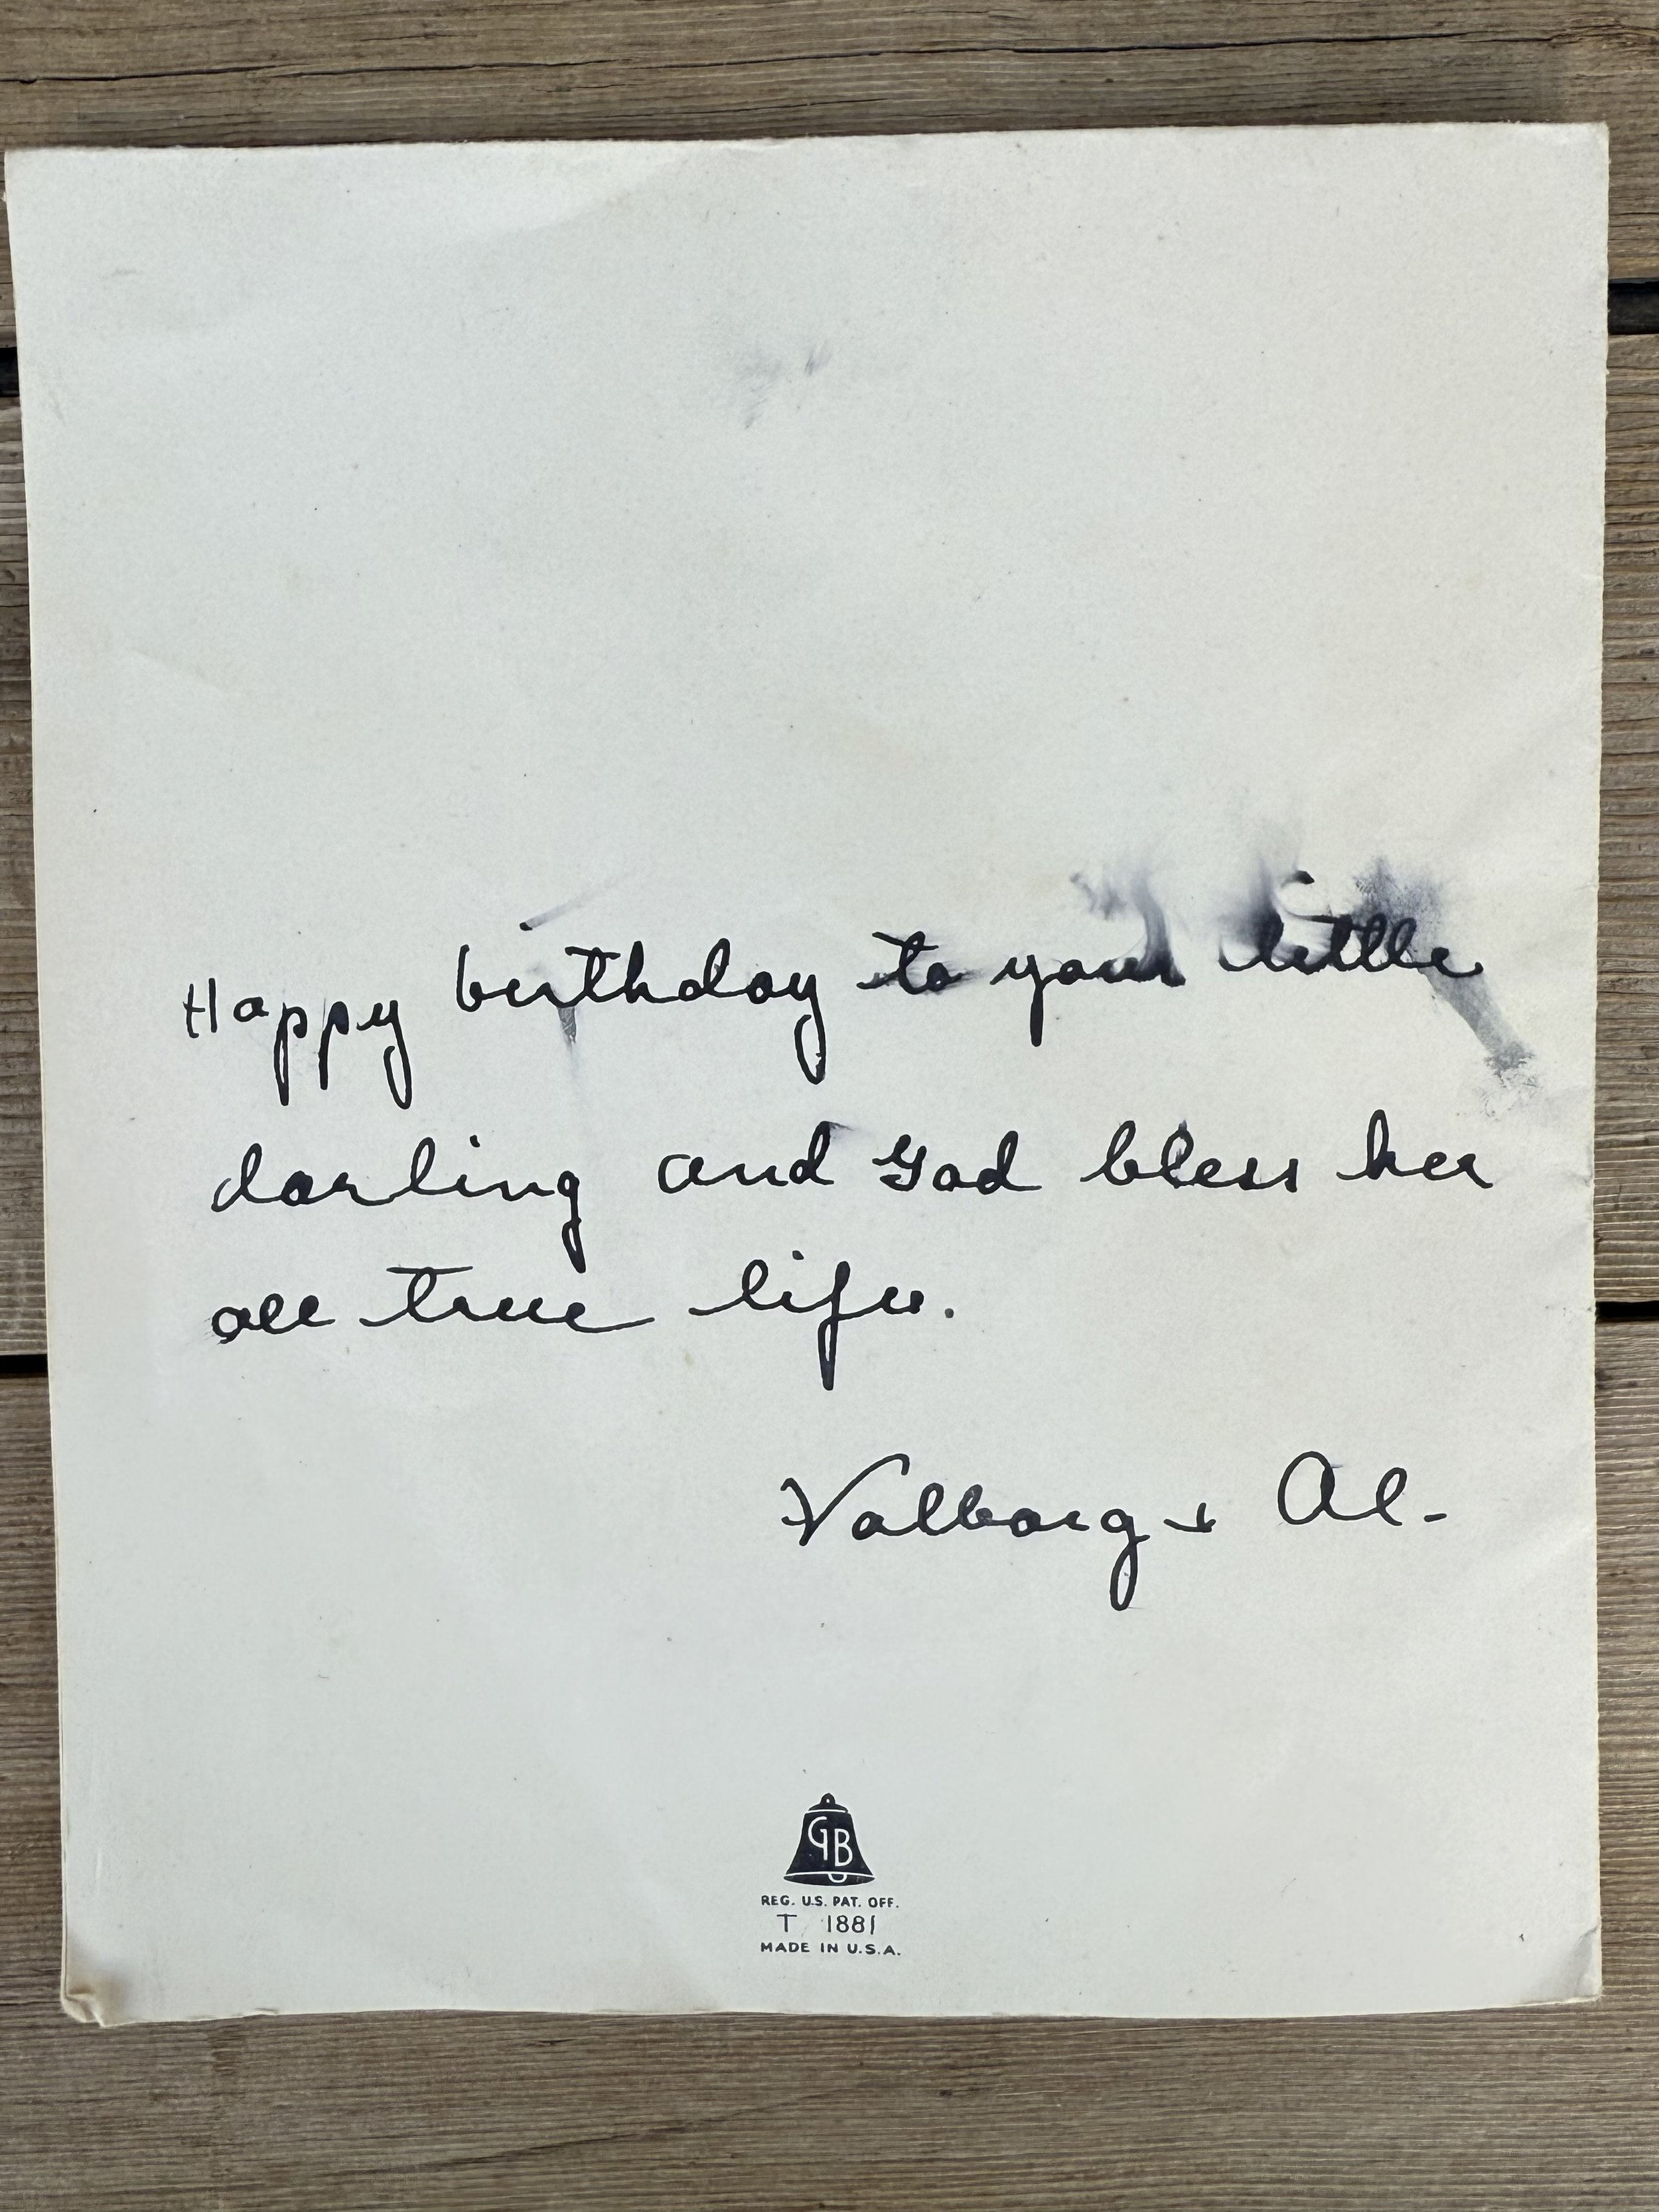 Happy birthday to your little
darling and God bless her
all true life.
Valborg + Al.
GB
REG. U.S. PAT. OFF.
T 1881
MADE IN U.S.A.